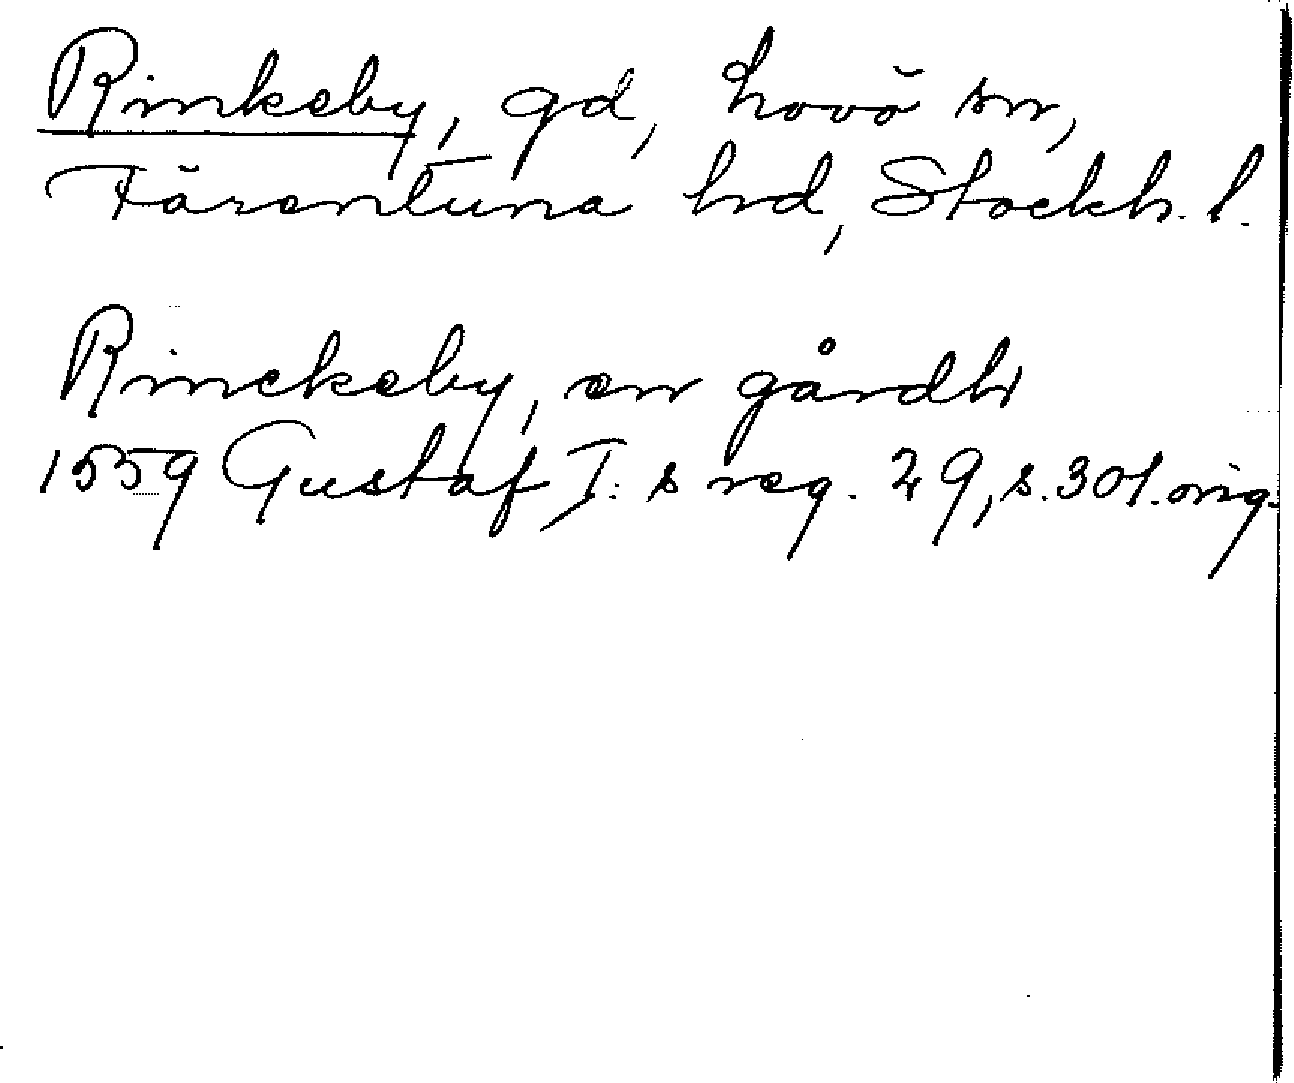 Rinkeby, gd, Lovö sn,
Färentuna hd, Stockh. l.
Rinckeby, en gårdh
1559 Gustaf I: s reg. 29, s. 301. orig.